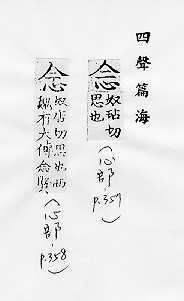 四聲篇海
念 奴玷切
思也
(心部,p.357)
念 奴玷切思也西
魏有大傅念賢
(心部,p.358)